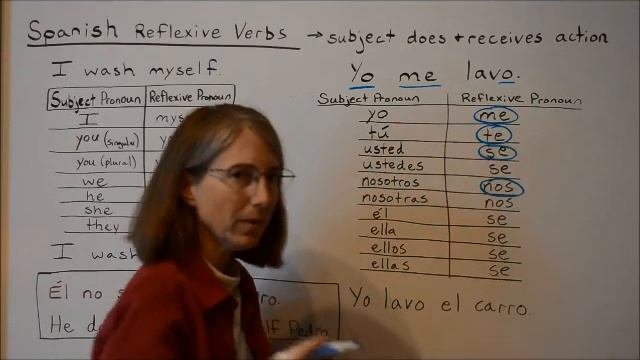 Spanish Reflexive Verbs → subject does + receives action
I wash myself.
Subject Pronoun Reflexive Pronoun
I
you (singular)
you (plural)
we
he
she
they
I wash
Él no
He
Pedro
Yo me lavo.
Subject Pronoun Reflexive Pronoun
yo me
tú te
usted se
ustedes se
nosotros nos
nosotras nos
él se
ella se
ellos se
ellas se
Yo lavo el carro.